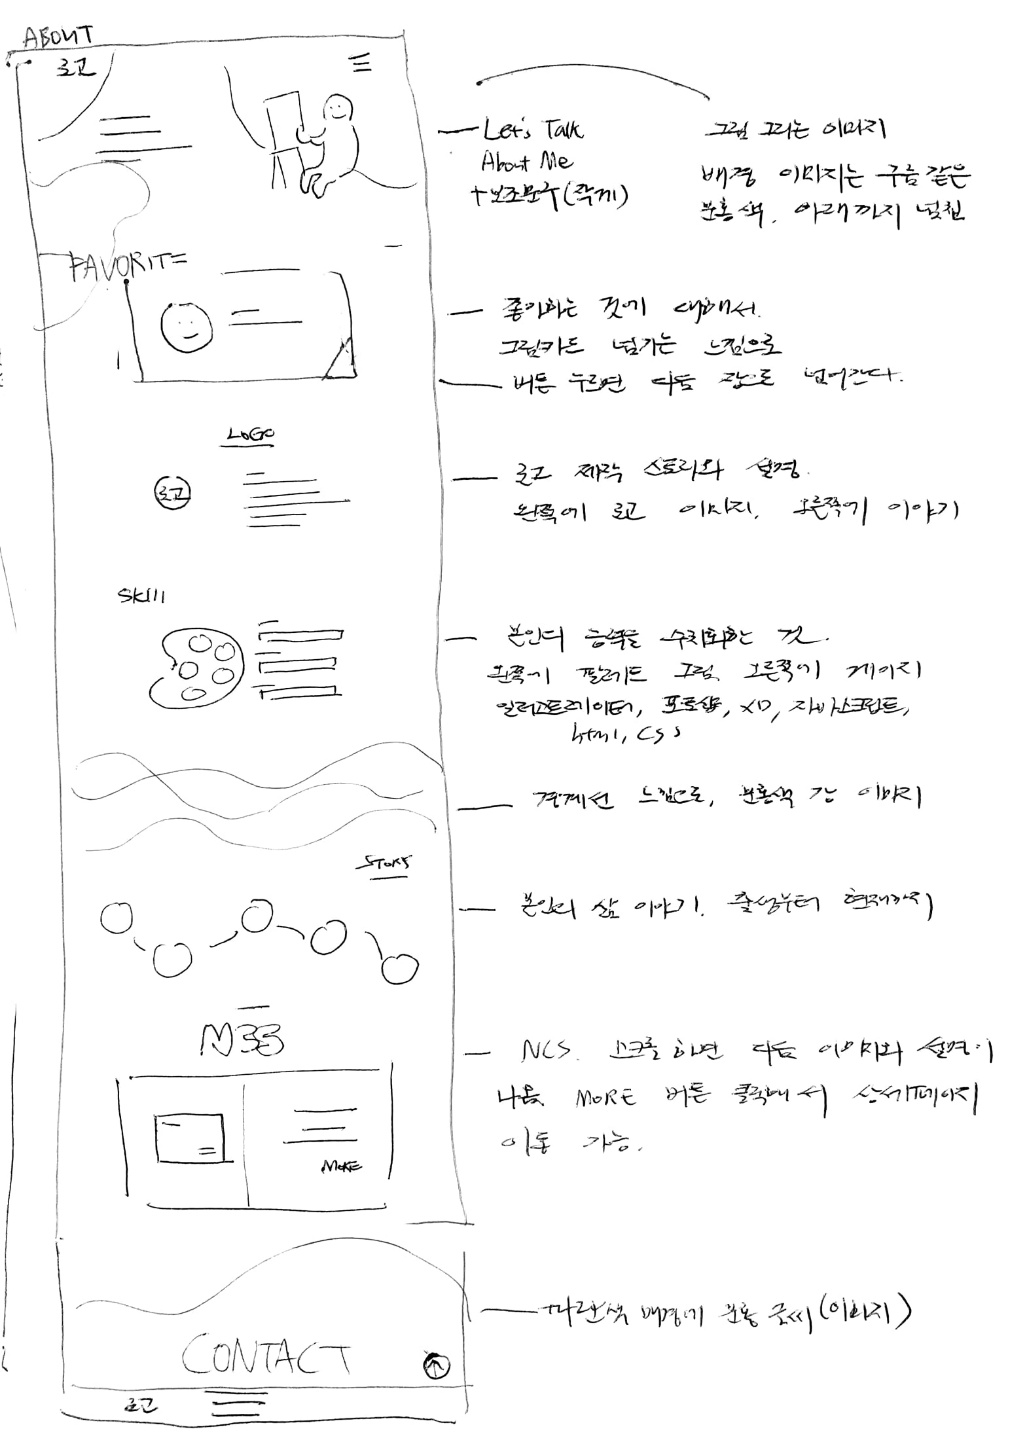 ABOUT
로고
Let's Talk
About Me
+보조문구(작게)
그림 그리는 이미지
배경 이미지는 구름 같은
분홍색. 아래까지 넘친
FAVORITE
좋아하는 것에 대해서.
그림카드 넘기는 느낌으로
버튼 누르면 다음 장으로 넘어간다.
LOGO
로고
로고 제작 스토리와 설명.
왼쪽에 로고 이미지, 오른쪽에 이야기
Skill
본인의 능력을 수치화한 것.
왼쪽에 팔레트 그림, 오른쪽에 게이지
일러스트레이터, 포토샵, XD, 자바스크립트,
html, CSS
경계선 느낌으로, 분홍색 강 이미지
STORY
본인의 삶 이야기. 출생부터 현재까지
NCS. 스크롤 하면 다음 이미지와 설명이
나옴. MORE 버튼 클릭해서 상세페이지
이동 가능.
MORE
파란색 배경에 분홍 글씨(이미지)
CONTACT
로고